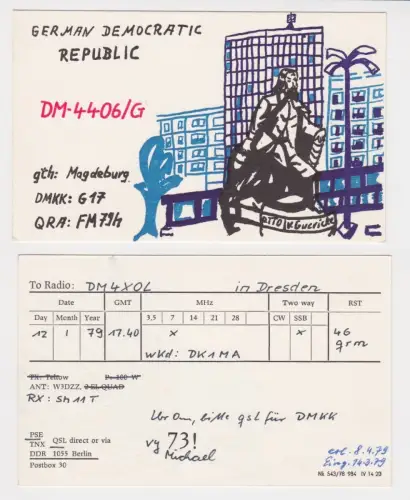 GERMAN DEMOCRATIC
REPUBLIC
DM-4406/G
gth: Magdeburg
DMKK: G17
QRA: FM79h
OTTO v. Guericke
To Radio: DM4XOL in Dresden
Date GMT MHz Two way RST
Day Month Year 3,5 7 14 21 28 CW SSB
12 1 79 17.40 x x 46
qrm
wkd: DK1MA
TX: Teltow P: 100 W
ANT: W3DZZ, 2-EL QUAD
RX: SH11T
Ur Om, bitte qsl für DMKK
vy 73!
Michael
PSE
TNX QSL direct or via
DDR 1055 Berlin
Postbox 30
erl. 8.4.79
Eing. 14.3.79
984 IV 14 23